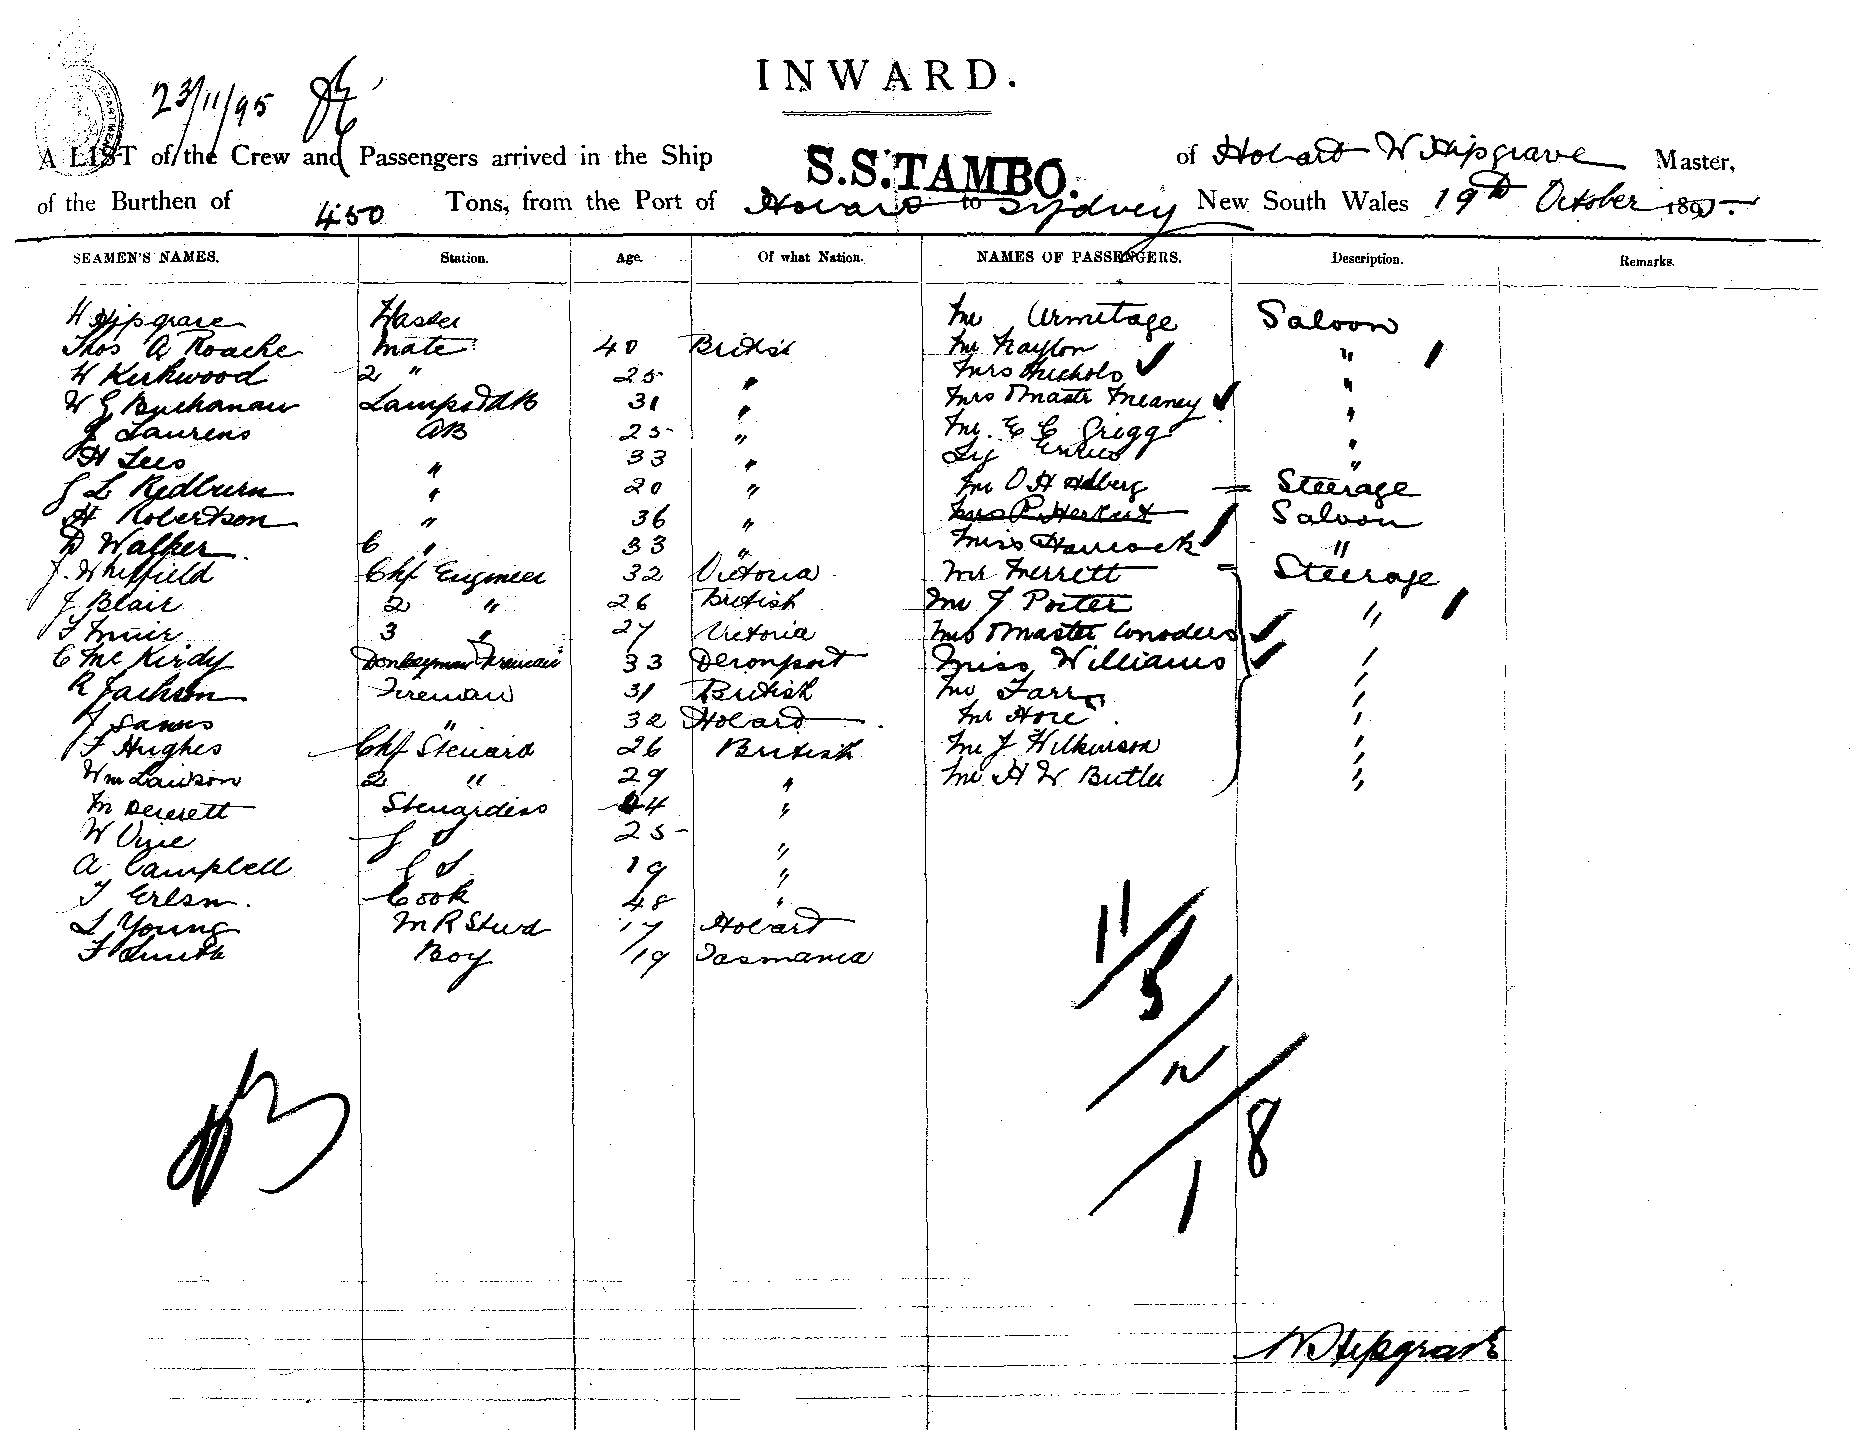 23/11/95
INWARD.
A LIST of the Crew and Passengers arrived in the Ship S.S. TAMBO. of Hobart W Hipgrave Master,
of the Burthen of 450 Tons, from the Port of Hobart to Sydney New South Wales 19th October 1895.
SEAMEN'S NAMES. Station. Age. Of what Nation. NAMES OF PASSENGERS. Description. Remarks.
W Hipgrave Master Mr Armitage Saloon
Thos A Roache Mate 40 British Mr Naylor "
W Kirkwood 2 " 25 " Mrs Nichols "
W G Buchanan Lamps & AB 31 " Mrs & Master Meaney "
J Laurens AB 25 " Mr. E C Grigg "
H Lees " 33 " "
J L Redburn " 20 " Mr O H Hdberg = Steerage
H Robertson " 36 " Mrs P Herbert Saloon
D Walker C " 33 " Miss Hancock "
J. Whiffield Chf Engineer 32 Victoria Mr Merrett = Steerage
J Blair 2 " 26 British Mr J Porter "
T Muir 3 " 27 Victoria Mrs & Master "
C McKirdy Donkeyman Fireman 33 Devonport Miss Williams "
R Jackson Fireman 31 British Mr Farr "
J " 32 Hobart Mr Hore "
F Hughes Chf Steward 26 British Mr J Wilkinson "
Wm Lawson 2 " 29 " Mr H W Butler "
M Deverett Stewardess 44 "
W Vine J S 25 "
A Campbell J S 19 "
T Erlsm. Cook 48 "
L Young M R Stwd 17 Hobart
F Smith Boy 19 Tasmania
11/5
/2
/8
1
W Hipgrave